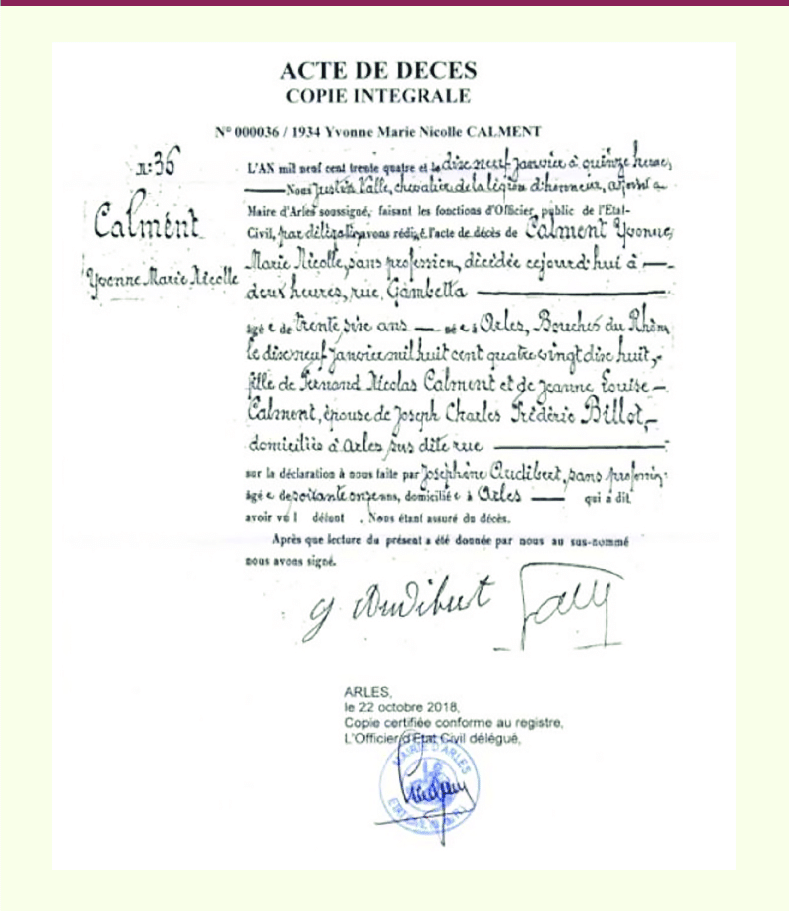 ACTE DE DECES
COPIE INTEGRALE
N° 000036 / 1934 Yvonne Marie Nicolle CALMENT
n: 36
Calment
Yvonne Marie Nicolle
L'AN mil neuf cent trente quatre et le dix neuf Janvier à quinze heures,
Nous Justin Valle, chevalier de la légion d'honneur, adjoint au
Maire d'Arles soussigné, faisant les fonctions d'Officier public de l'Etat-
Civil, par délégation avons rédigé l'acte de décès de Calment Yvonne
Marie Nicolle, sans profession, décédée cejourd'hui à
deux heures, rue Gambetta
âgé e de trente six ans né e à Arles, Bouches du Rhône
le dix neuf Janvier mil huit cent quatre vingt dix huit,
fille de Fernand Nicolas Calment et de Jeanne Louise
Calment, épouse de Joseph Charles Frédéric Billot,
domiciliés à Arles sus dite rue
sur la déclaration à nous faite par Joséphine Audibert, sans profession
âgé e de soixante onze ans, domicilié e à Arles qui a dit
avoir vu l défunt . Nous étant assuré du décès.
Après que lecture du présent a été donnée par nous au sus-nommé
nous avons signé.
J Audibert
ARLES,
le 22 octobre 2018,
Copie certifiée conforme au registre,
L'Officier d'Etat Civil délégué,
MAIRIE D'ARLES
ETAT CIVIL